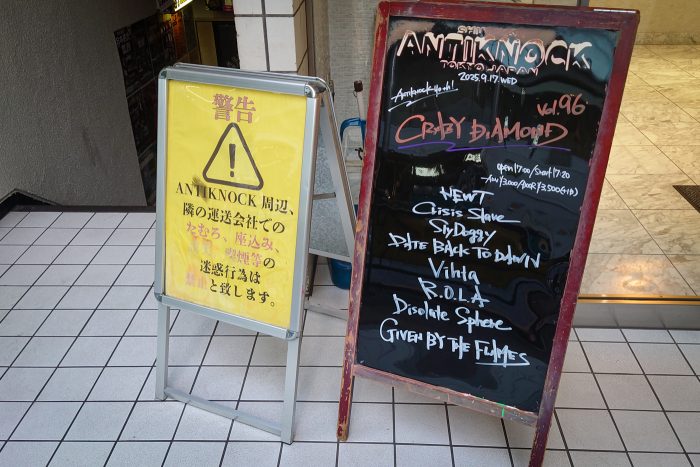 警告
ANTIKNOCK 周辺、
隣の運送会社での
たむろ、座込み、
喫煙等の
迷惑行為は
禁止と致します。
ANTIKNOCK
TOKYO JAPAN
2025.9.17.WED
Antiknock
Vol.96
CRAZY DIAMOND
open 17:00/Start 17:20
Adv ¥3,000/Door ¥3,500(+1D)
NEWT
Crisis Slave
SlyDoggy
DATE BACK TO DAWN
Vihla
R.O.L.A
Disolate Sphere
GIVEN BY THE FLAMES